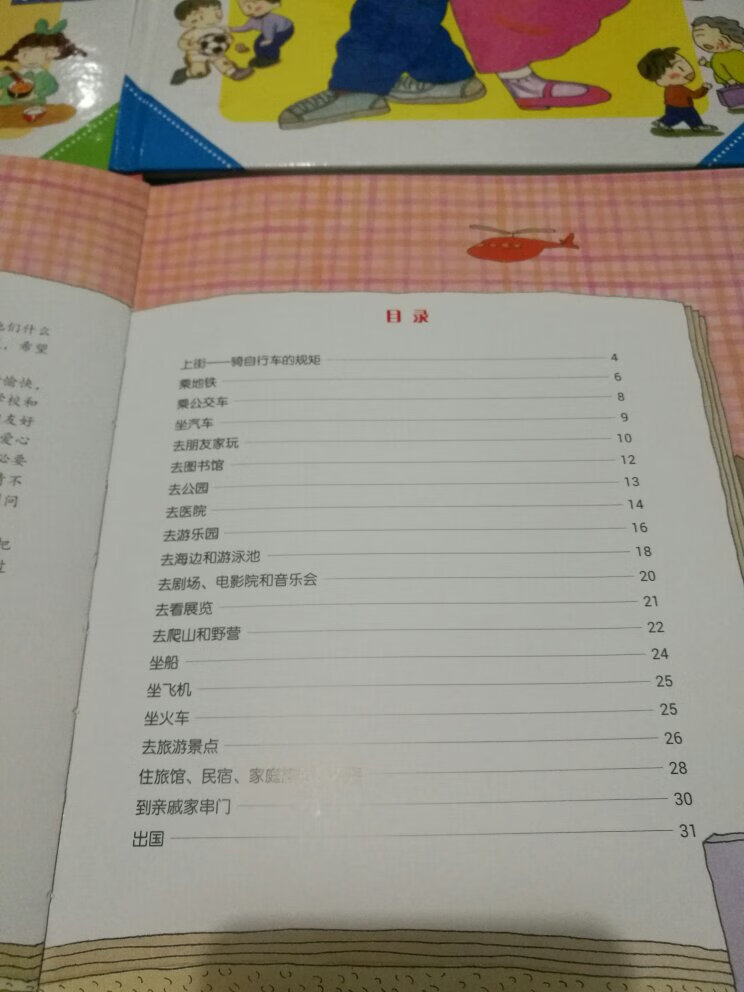 们什么
，希望
愉快，
学校和
友好
爱心
必要
不
问
把
过
目录
上街——骑自行车的规矩 4
乘地铁 6
乘公交车 8
坐汽车 9
去朋友家玩 10
去图书馆 12
去公园 13
去医院 14
去游乐园 16
去海边和游泳池 18
去剧场、电影院和音乐会 20
去看展览 21
去爬山和野营 22
坐船 24
坐飞机 25
坐火车 25
去旅游景点 26
住旅馆、民宿、家庭旅 28
到亲戚家串门 30
出国 31